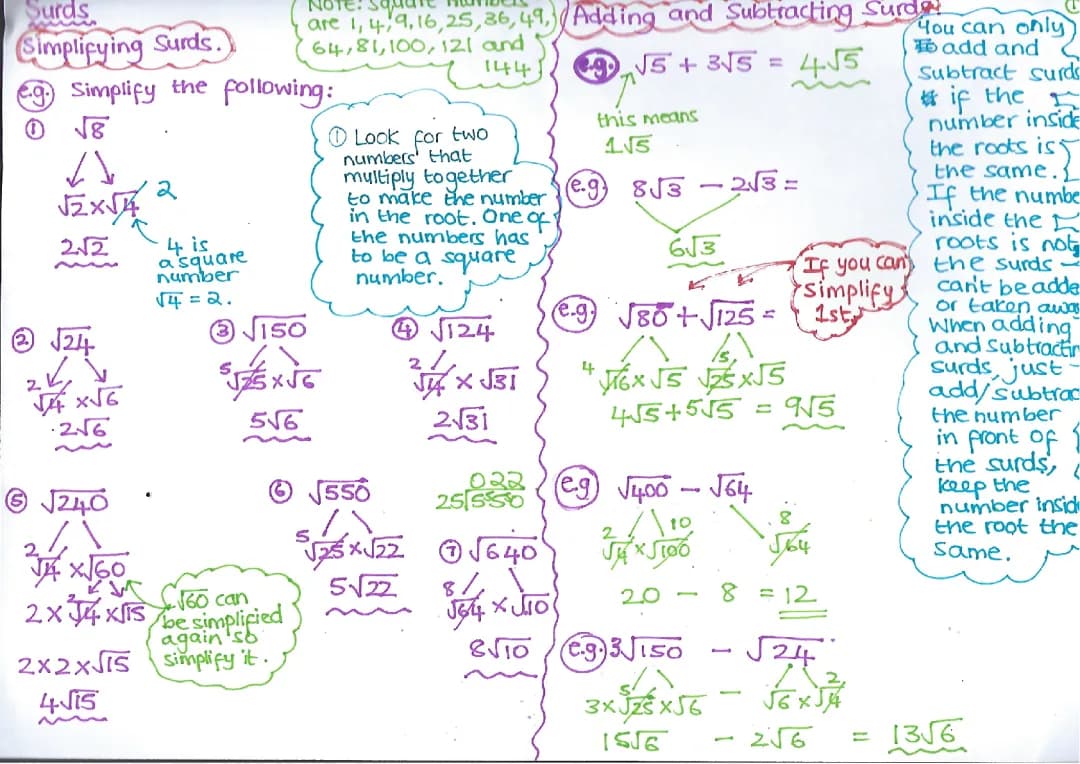 Surds
Simplifying Surds.
NOTE: Square numbers
are 1, 4, 9, 16, 25, 36, 49,
64, 81, 100, 121 and
144
e.g. Simplify the following:
① √8
√2 × √4 2
2√2
4 is
a square
number
√4 = 2.
① Look for two
numbers that
multiply together
to make the number
in the root. One of
the numbers has
to be a square
number.
② √24
2
√4 × √6
2√6
③ √150
5
√25 × √6
5√6
④ √124
2
√4 × √31
2√31
⑤ √240
2
√4 × √60
2 × √4 × √15
2
2 × 2 × √15
4√15
√60 can
be simplified
again so
simplify it.
⑥ √550
5
√25 × √22
5√22
022
25√550
⑦ √640
8
√64 × √10
8√10
Adding and Subtracting Surds!
e.g. √5 + 3√5 = 4√5
this means
1√5
e.g. 8√3 − 2√3 =
6√3
If you can
simplify
1st.
e.g. √80 + √125 =
4 5
√16 × √5 √25 × √5
4√5 + 5√5 = 9√5
e.g √400 − √64
2 10 8
√4 × √100 √64
20 − 8 = 12
e.g. 3√150 − √24
5 2
3 × √25 × √6 − √6 × √4
15√6 − 2√6 = 13√6
You can only
add and
subtract surds
if the
number inside
the roots is
the same.
If the numbe
inside the
roots is not
the surds
can't be adde
or taken away
When adding
and subtractin
surds, just
add/subtrac
the number
in front of
the surds,
keep the
number insid
the root the
same.